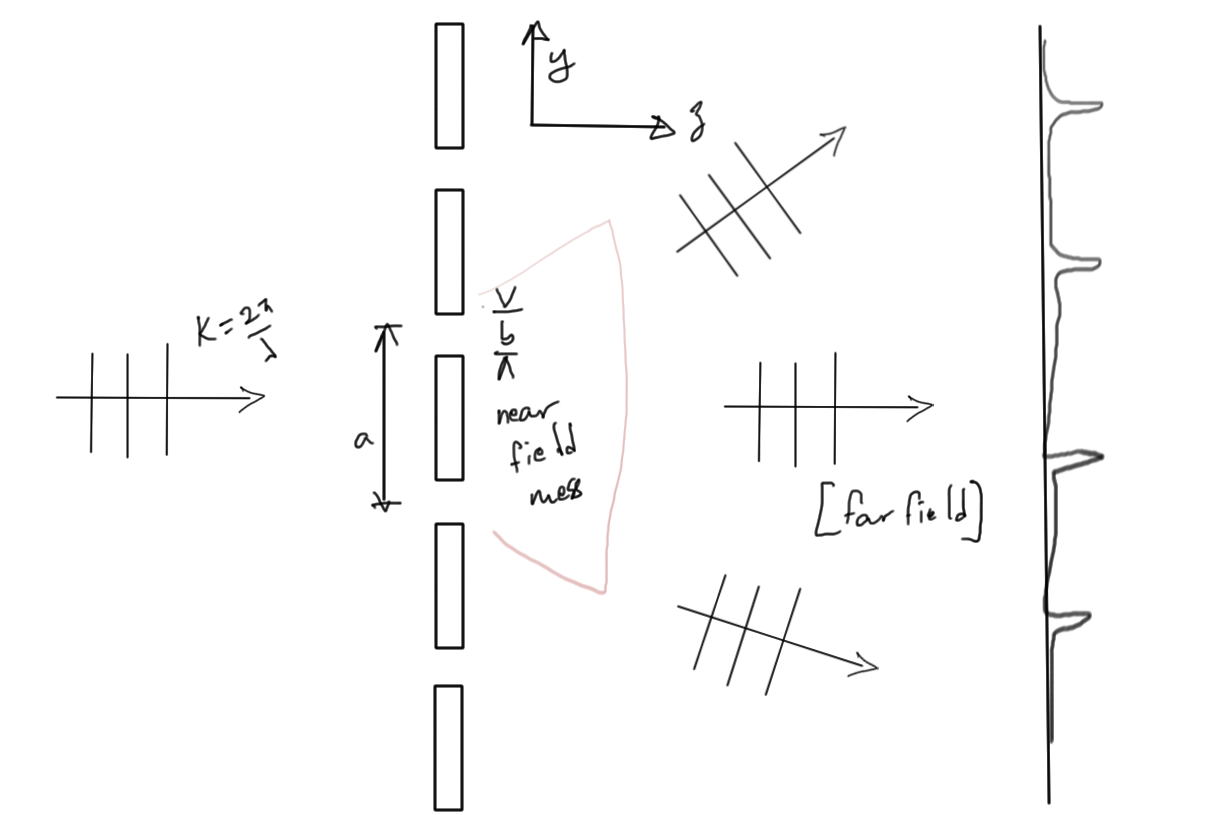 y
z
K = 2π/λ
a
b
near
field
mess
[far field]